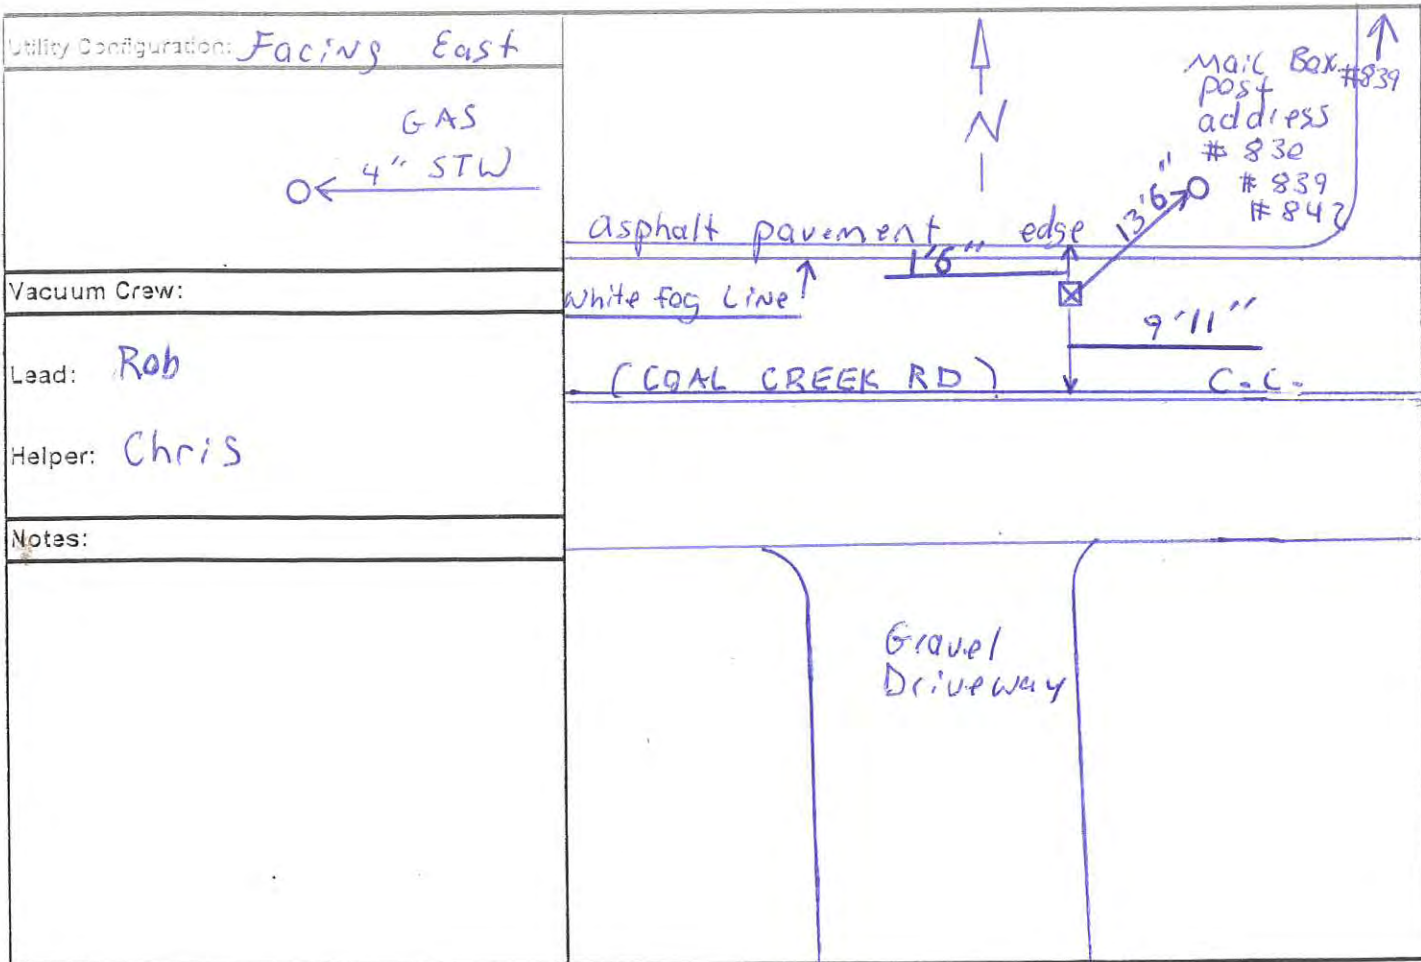 Utility Configuration: Facing East
GAS
4" STW
Vacuum Crew:
Lead: Rob
Helper: Chris
Notes:
N
Mail Box
post
address
# 830
# 839
# 842
#839
13'6"
asphalt pavement edge
1'6"
white fog Line
9'11"
(COAL CREEK RD) C.L.
Gravel
Driveway